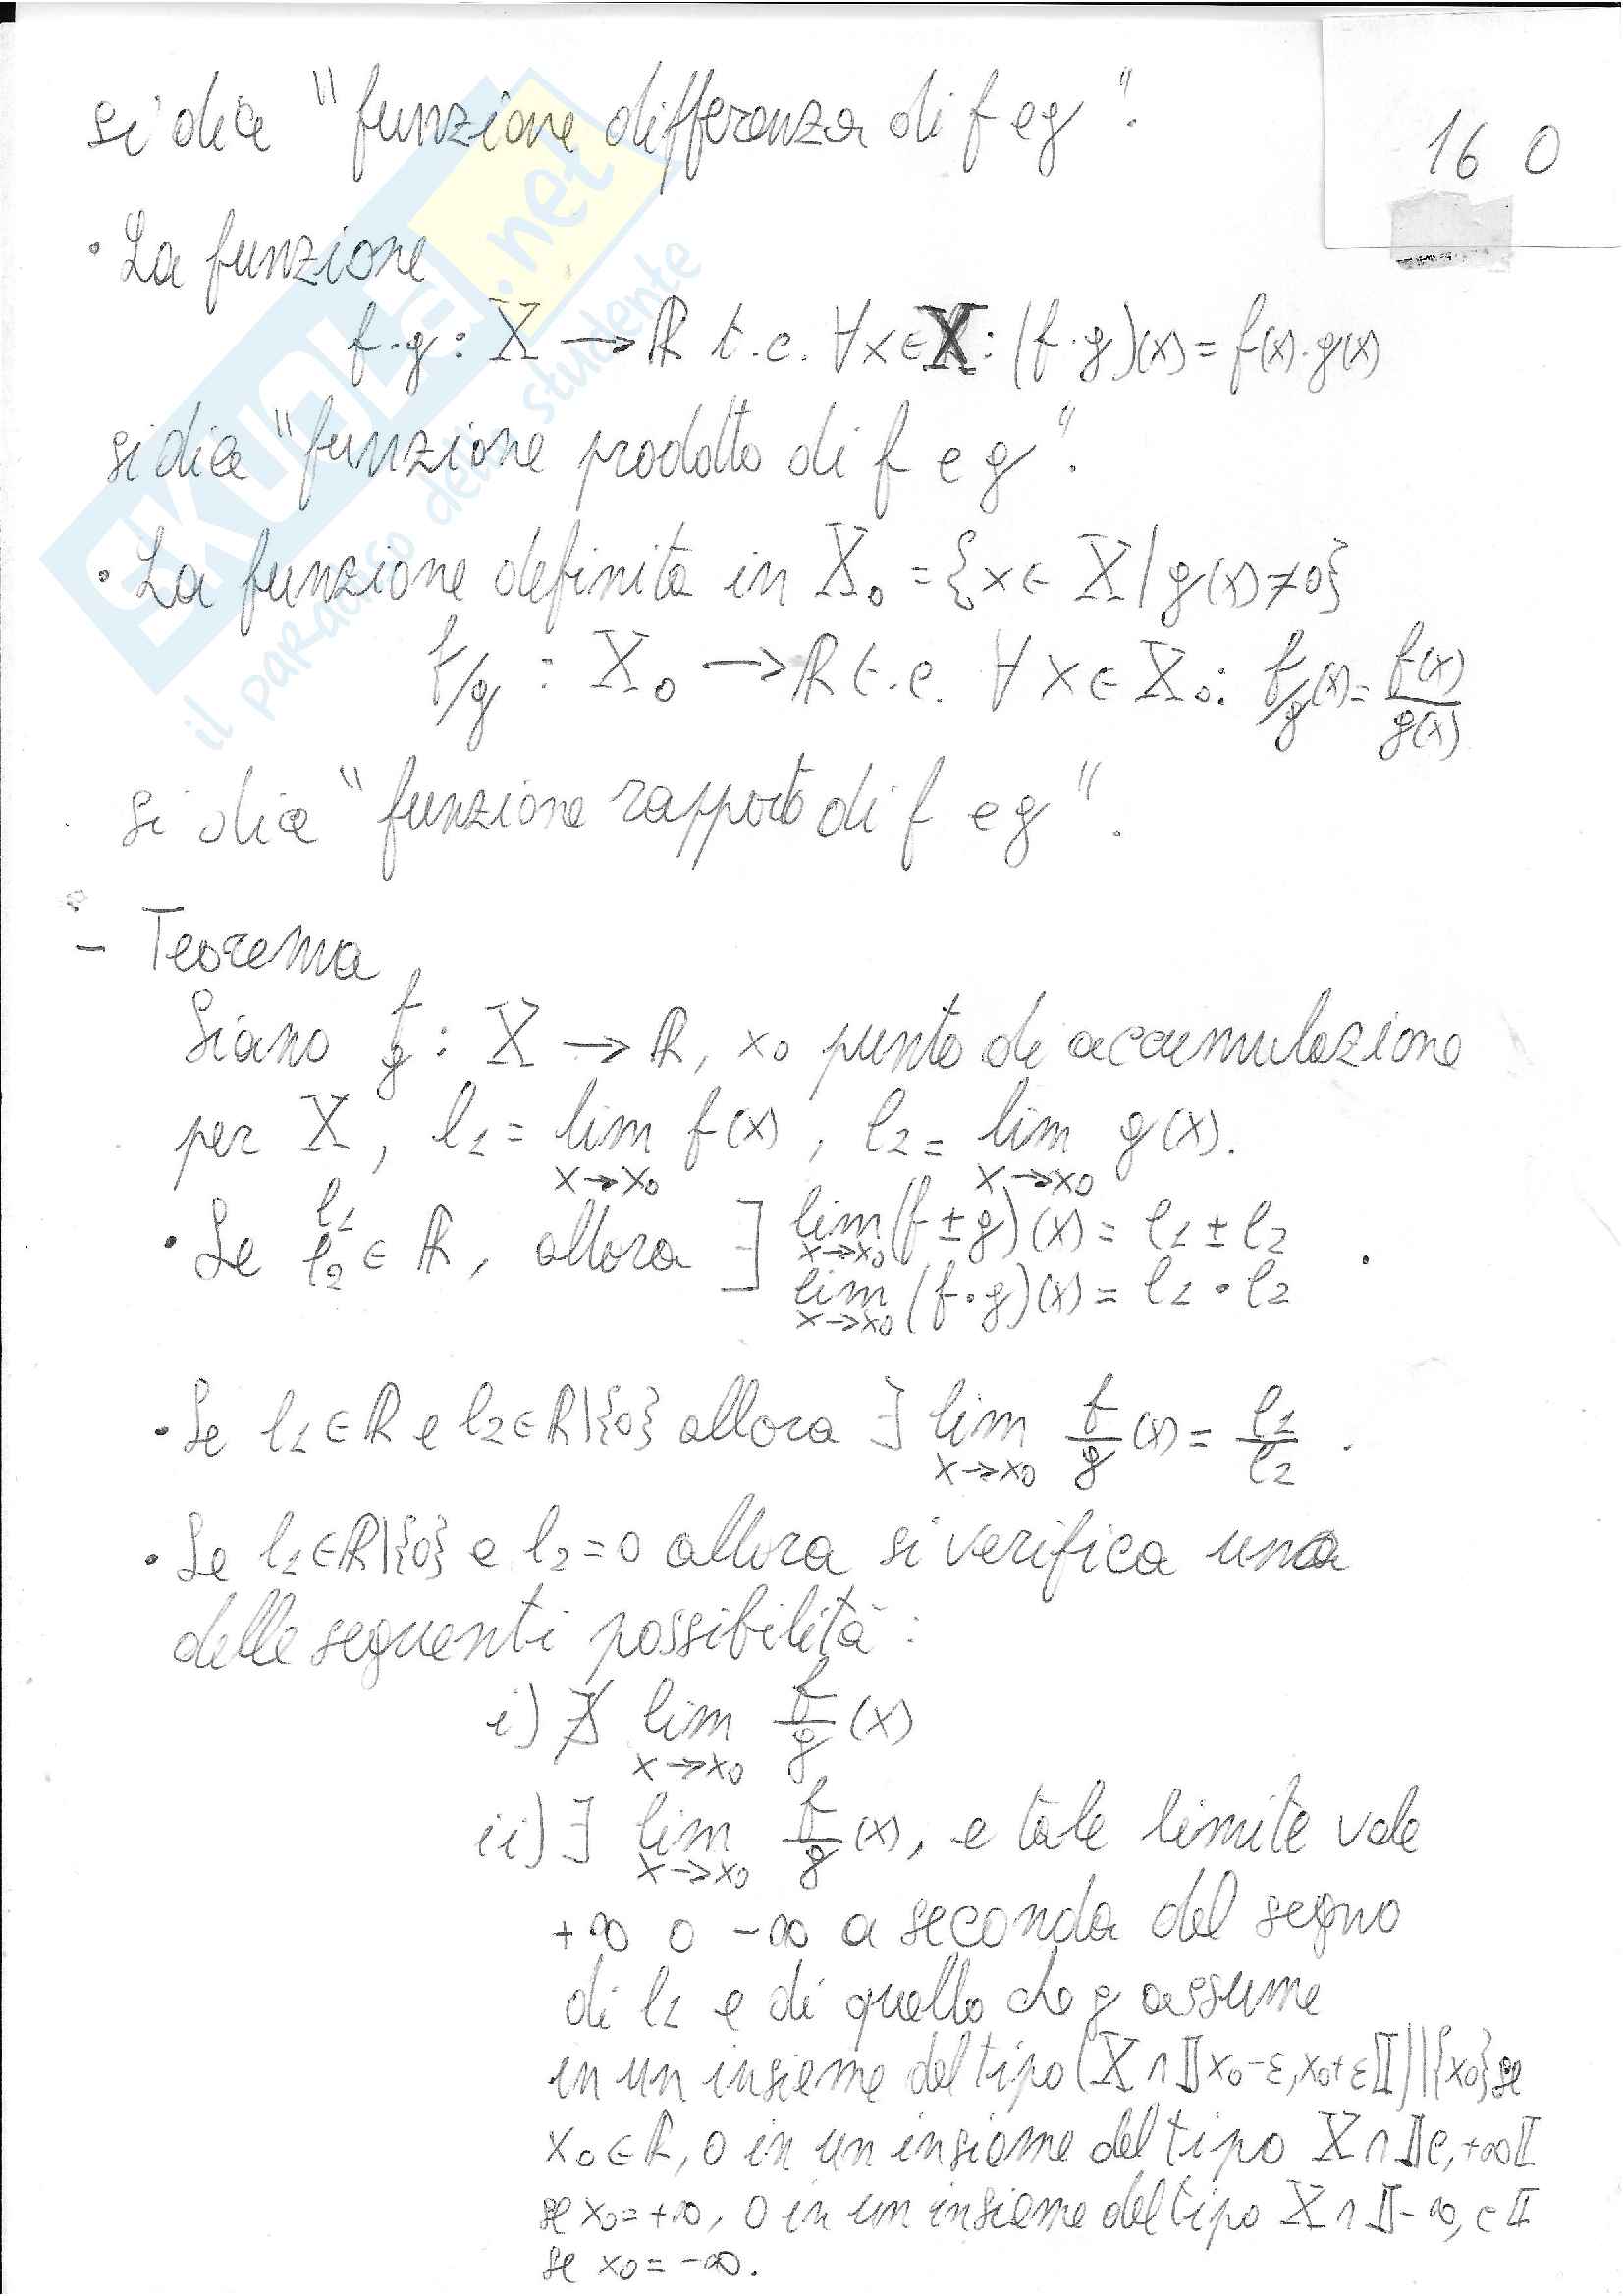 si dica "funzione differenza di f e g".
16 0
• La funzione
f·g : X → ℝ t.c. ∀x∈X : (f·g)(x) = f(x)·g(x)
si dica "funzione prodotto di f e g".
• La funzione definita in X₀ = {x ∈ X | g(x) ≠ 0}
f/g : X₀ → ℝ t.c. ∀x∈X₀ : f/g(x) = f(x)/g(x)
si dica "funzione rapporto di f e g".
- Teorema
Siano f, g : X → ℝ, x₀ punto di accumulazione
per X, l₁ = lim x→x₀ f(x), l₂ = lim x→x₀ g(x).
• Se l₁, l₂ ∈ ℝ, allora ∃ lim x→x₀ (f±g)(x) = l₁ ± l₂ .
lim x→x₀ (f·g)(x) = l₁ · l₂
• Se l₁∈ℝ e l₂∈ℝ\{0} allora ∃ lim x→x₀ f/g (x) = l₁/l₂ .
• Se l₁∈ℝ\{0} e l₂=0 allora si verifica una
delle seguenti possibilità :
i) ∄ lim x→x₀ f/g (x)
ii) ∃ lim x→x₀ f/g (x), e tale limite vale
+∞ o -∞ a seconda del segno
di l₁ e di quello che g assume
in un insieme del tipo (X ∩ ]]x₀-ε, x₀+ε[[)\{x₀} se
x₀∈ℝ, o in un insieme del tipo X ∩ ]]c, +∞[[
se x₀=+∞, o in un insieme del tipo X ∩ ]]-∞, c[[
se x₀ = -∞.
SKUOLA.net
il paradiso dello studente